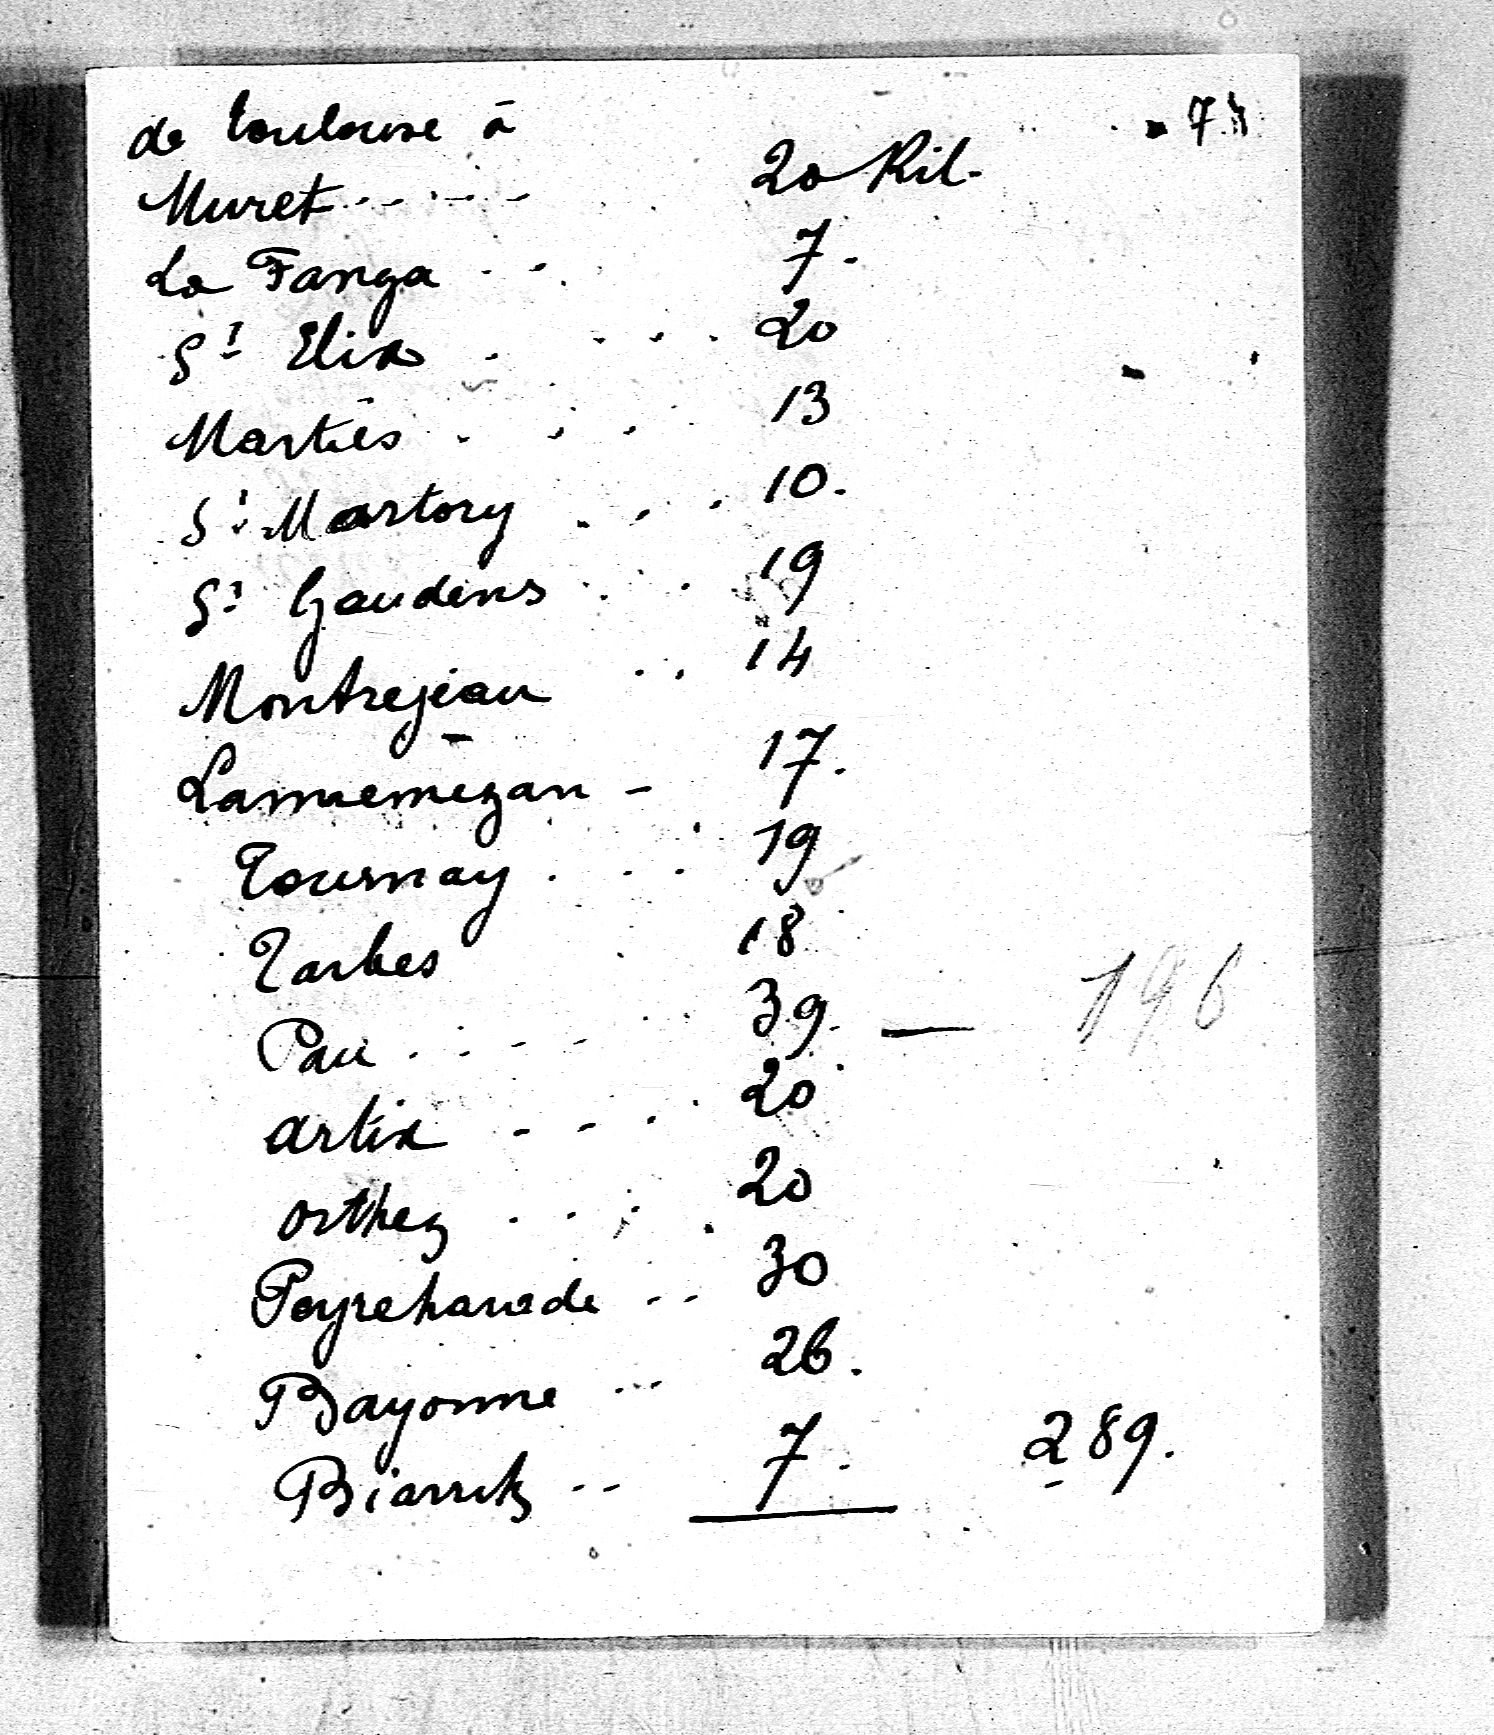 de toulouse à
Muret 20 Kil.
La Fanga 7.
St Elix 20
Martiès 13
St Martory 10.
St Gaudens 19
Montrejeau 14
Lannemezan 17.
Tournay 19
Tarbes 18
Pau 39. — 196
artix 20
orthez 20
Peyrehorade 30
Bayonne 26.
Biarritz 7. 289.